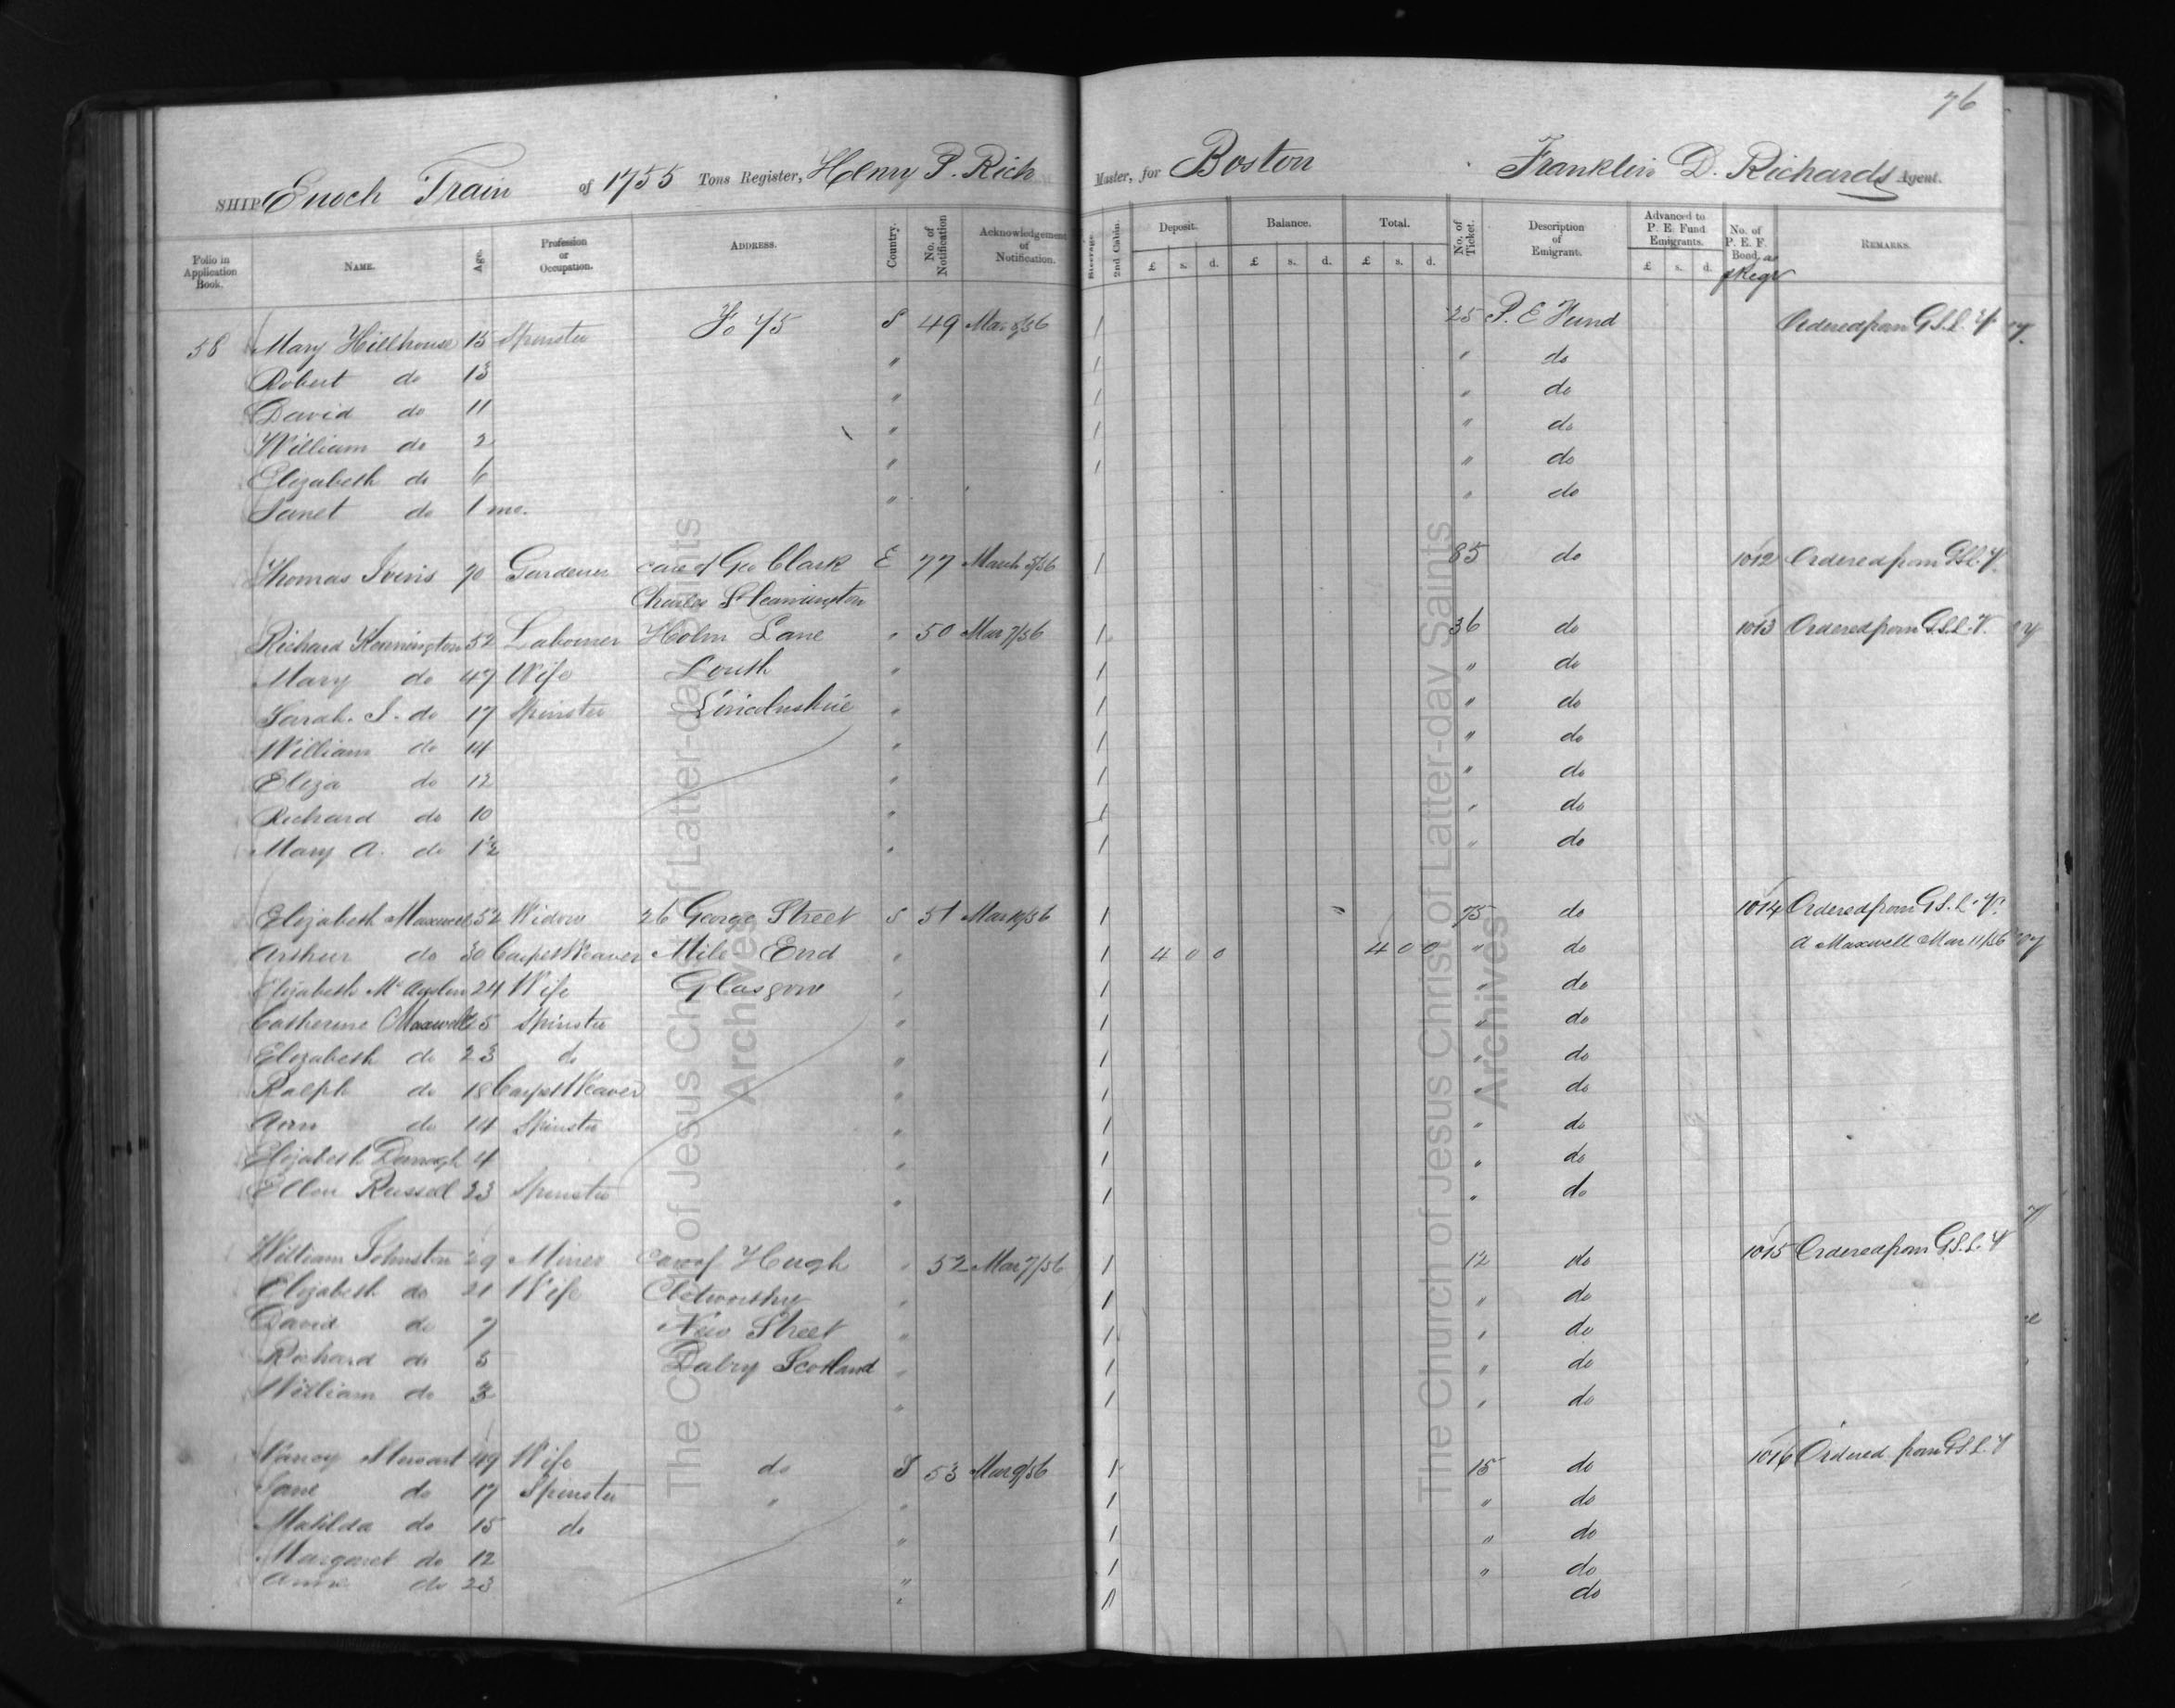 76
SHIP Enoch Train of 1755 Tons Register, Henry P. Rich Master, for Boston Franklin D. Richards Agent.
Folio in Application Book. NAME. Age. Profession or Occupation. ADDRESS. Country. No. of Notification Acknowledgement of Notification. Steerage. 2nd Cabin. Deposit. £ s. d. Balance. £ s. d. Total. £ s. d. No. of Ticket. Description of Emigrant. Advanced to P. E. Fund Emigrants. £ s. d. No. of P. E. F. Bond. REMARKS.
58 Mary Hillhouse 15 Spinster Fo 75 S 49 Mar 8/56 1 25 P. E Fund Ordered from G.S.L. V.
Robert do 13 " 1 " do
David do 11 " 1 " do
William do 2 " 1 " do
Elizabeth do 6 " 1 " do
Janet do 1 mo. " " do
Thomas Iveris 70 Gardener care of Geo Clark E 77 March 5/56 1 85 do 1012 Ordered from G.S.L. V.
Charles St Leamington
Richard Kennington 52 Labourer Holm Lane " 50 Mar 7/56 1 36 do 1013 Ordered from G.S.L. V.
Mary do 47 Wife Louth " 1 " do
Sarah. J. do 17 Spinster Lincolnshire " 1 " do
William do 14 " 1 " do
Eliza do 12 " 1 " do
Richard do 10 " 1 " do
Mary A. do " 1 " do
Elizabeth Maxwell 52 Widow 26 George Street S 51 Mar 10/56 1 75 do 1014 Ordered from G.S.L. V.
Arthur do 30 Carpet Weaver Mile End " 1 4 0 0 4 0 0 " do A Maxwell Mar 11/56
Elizabeth 24 Wife Glasgow " 1 " do
Catherine Maxwell 25 Spinster " 1 " do
Elizabeth do 23 do " 1 " do
Ralph do 18 Carpet Weaver " 1 " do
Ann do 14 Spinster " 1 " do
Elizabeth 4 " 1 " do
Ellen Russell 23 Spinster " 1 " do
William Johnston 29 Miner Care of Hugh " 52 Mar 7/56 1 12 do 1015 Ordered from G.S.L. V
Elizabeth do 21 Wife Clotworthy " 1 " do
David do 7 New Street " 1 " do
Richard do 5 Dalry Scotland " 1 " do
William do 3 " 1 " do
Nancy Stewart 49 Wife do S 53 Mar 9/56 1 15 do 1016 Ordered from G.S.L. V
Jane do 17 Spinster " " 1 " do
Matilda do 15 do " 1 " do
Margaret do 12 " 1 " do
Ann do 23 " do
The Church of Jesus Christ of Latter-day Saints
Archives
The Church of Jesus Christ of Latter-day Saints
Archives